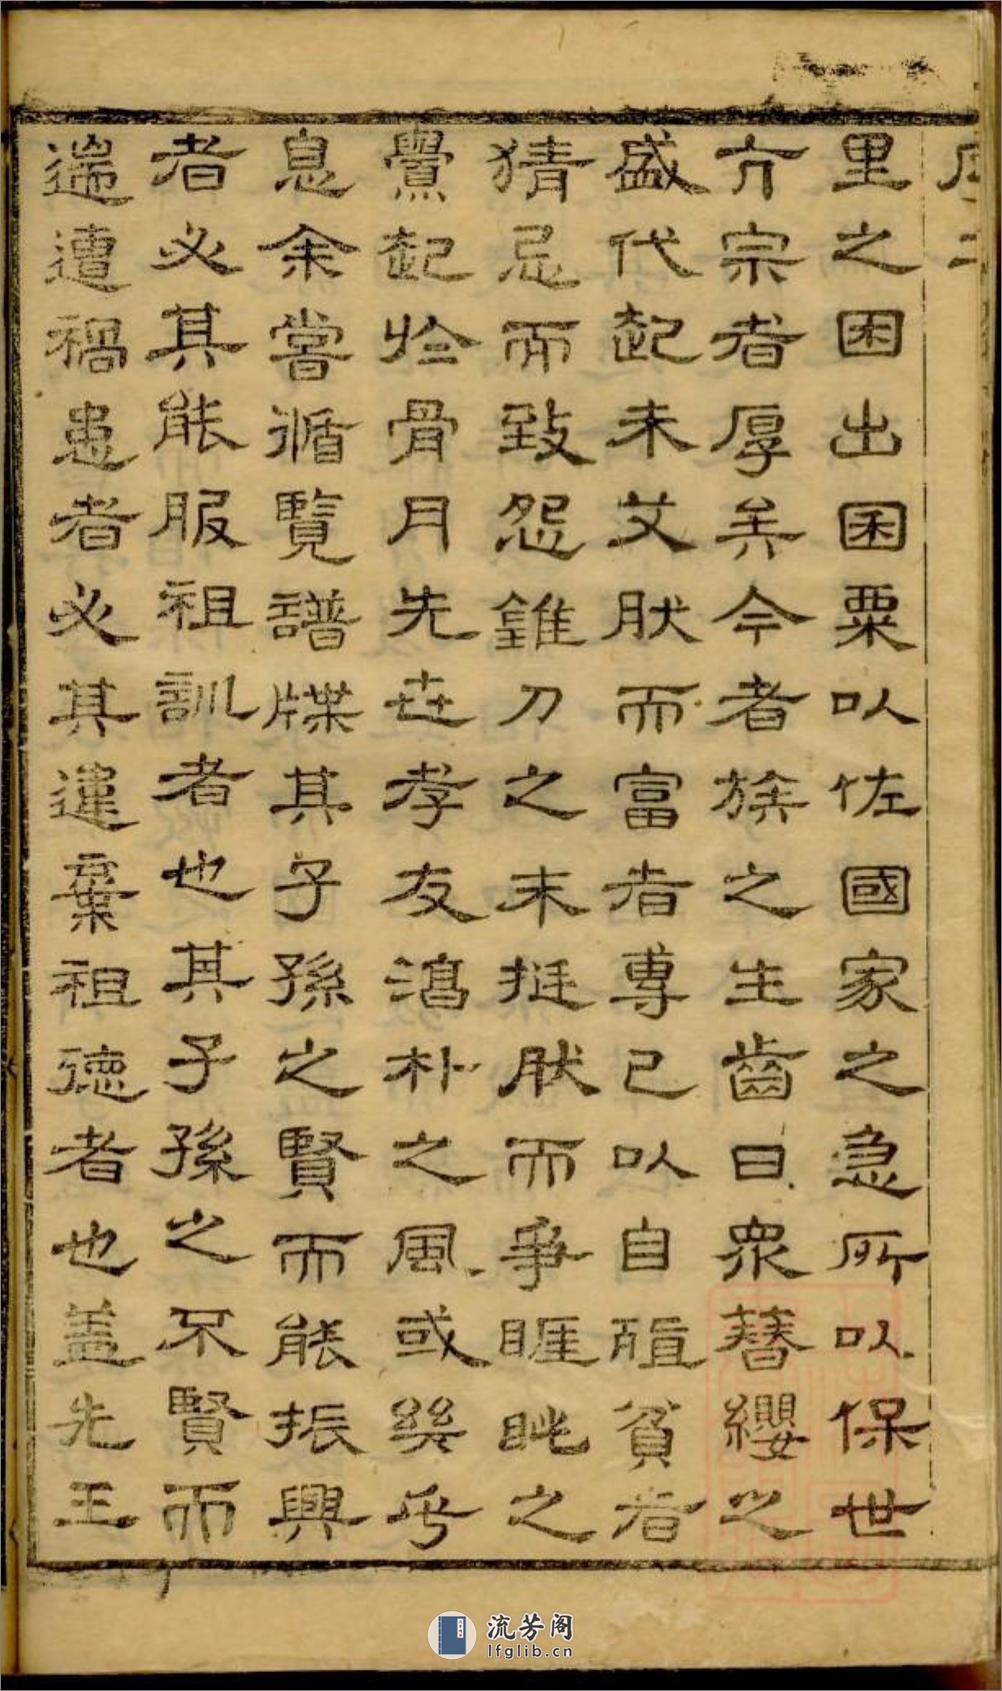 里之困出囷粟以佐國家之急所以保世
亢宗者厚矣今者族之生齒日眾簪纓之
盛代起未艾肰而富者專己以自殖貧者
猜忌而致怨錐刀之末挺肰而爭睚眦之
釁起於骨月先世孝友淳朴之風或幾乎
息余嘗循覽譜牒其子孫之賢而能振興
者必其能服祖訓者也其子孫之不賢而
遄遭禍患者必其違棄祖德者也盖先王
流芳阁
lfglib.cn